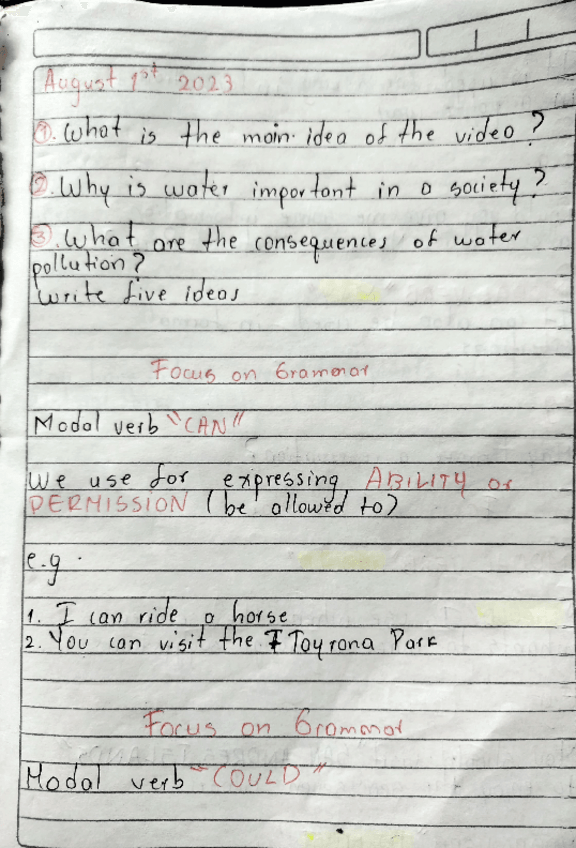 August 1st 2023
1. What is the main idea of the video?
2. Why is water important in a society?
3. What are the consequences of water
pollution?
Write five ideas
Focus on Grammar
Modal verb "CAN"
We use for expressing ABILITY or
PERMISSION (be allowed to)
e.g.
1. I can ride a horse
2. You can visit the Tayrona Park
Focus on Grammar
Modal verb "COULD"